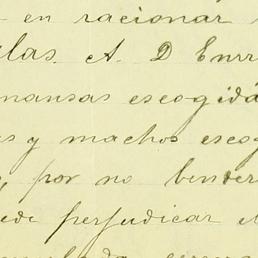 en racionar
las. A. D Enrr
mansas escogida
s y machos escog
, por no bender
ede perjudicar e